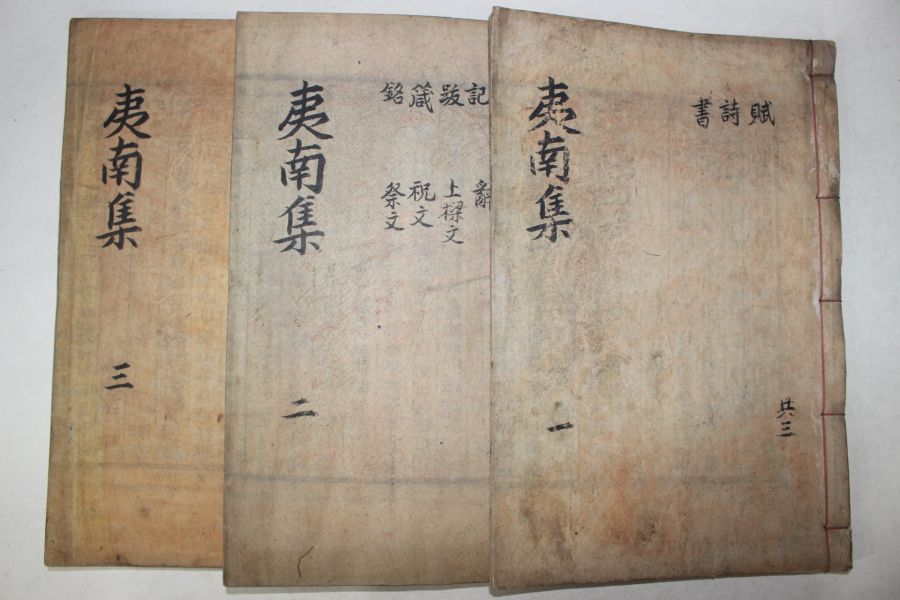 賦
詩
書
共三
夷南集
一
記
跋
箴
銘
辭
上樑文
祝文
祭文
夷南集
二
夷南集
三